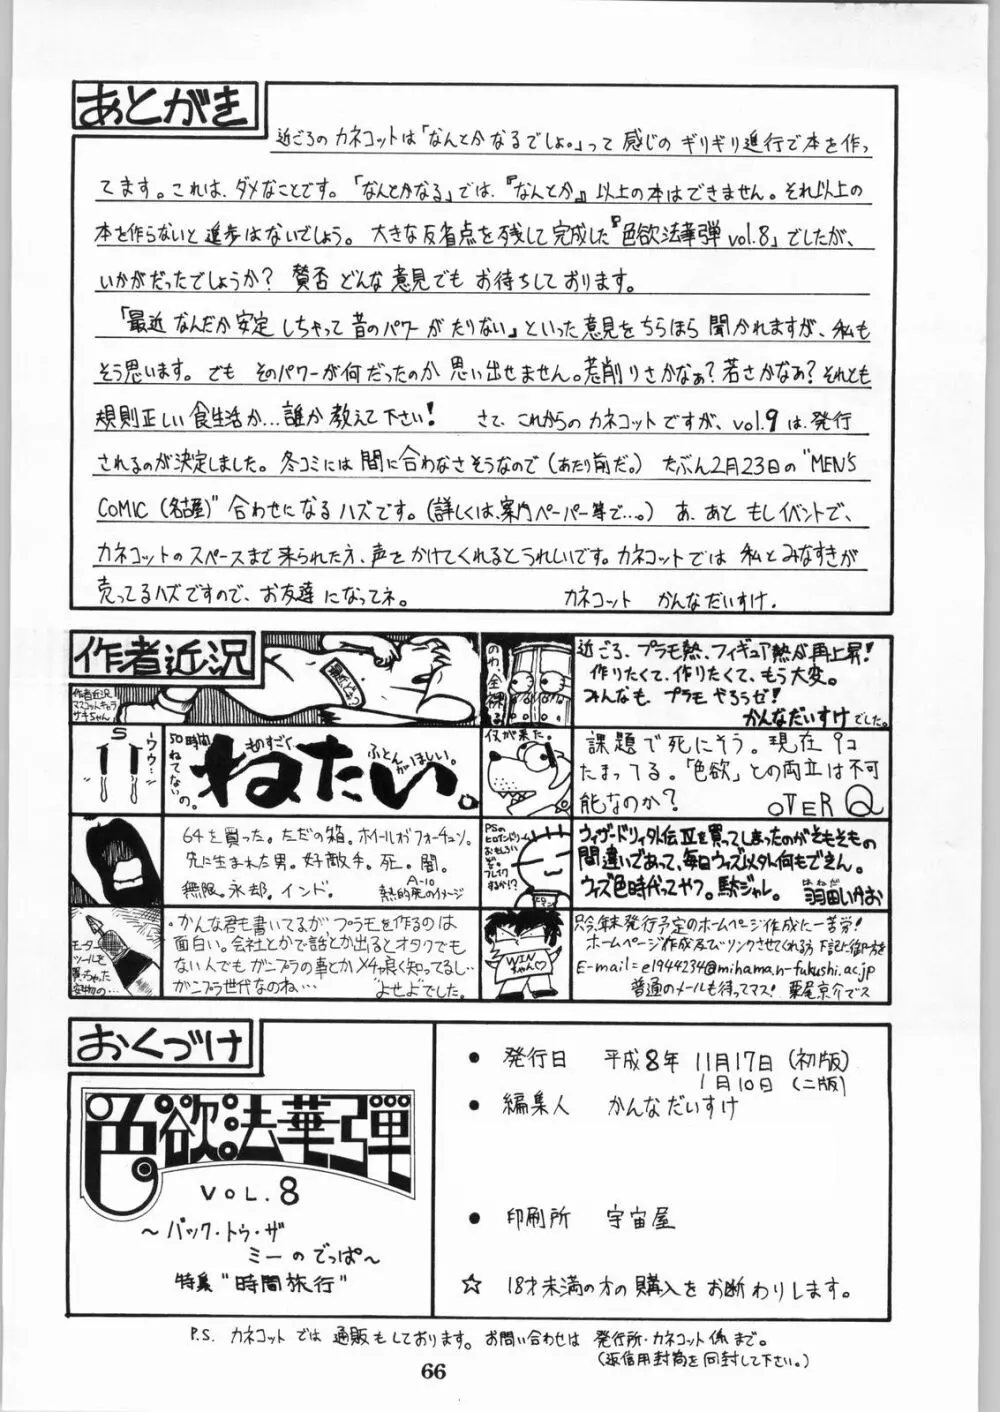 あとがき
近ごろのカネコットは「なんとかなるでしょ。」って感じのギリギリ進行で本を作っ
てます。これは、ダメなことです。「なんとかなる」では、『なんとか』以上の本はできません。それ以上の
本を作らないと進歩はないでしょう。大きな反省点を残して完成した『色欲法華弾vol.8』でしたが、
いかがだったでしょうか？賛否どんな意見でもお待ちしております。
「最近なんだか安定しちゃって昔のパワーがたりない」といった意見をちらほら聞かれますが、私も
そう思います。でもそのパワーが何だったのか思い出せません。荒削りさかなぁ？若さかなぁ？それとも
規則正しい食生活か…誰か教えて下さい！さて、これからのカネコットですが、vol.9は、発行
されるのが決定しました。冬コミには間に合わなさそうなので（あたり前だ。）たぶん2月23日の"MEN'S
COMIC（名古屋）"合わせになるハズです。（詳しくは、案内ペーパー等で…。）あ、あともしイベントで、
カネコットのスペースまで来られた方、声をかけてくれるとうれしいです。カネコットでは私とみなすきが
売ってるハズですので、お友達になってネ。カネコット かんなだいすけ.
作者近況
作者近況
マスコットキャラ
サキちゃん
のわ、全裸
近ごろ、プラモ熱、フィギュア熱が再上昇！
作りたくて、作りたくて、もう大変。
みんなも、プラモやろうぜ！
かんなだいすけでした。
S
ーウウ…
50時間
ねてない
の。
ものすごく
ねたい。
ふとんがほしい。
何が来た。
課題で死にそう。現在9コ
たまってる。「色欲」との両立は不可
能なのか？
OVER Q
64を買った。ただの箱。ホイールオブフォーチュン。
先に生まれた男。好敵手。死。闇。
無限。永却。インド。
A-10
熱的死のイメージ
PSの
ヒロインドリーム
おもしろい
ぞ。
ブレイク
するか!?
ウィザードリィ外伝Ⅳを買ってしまったのがそもそもの
間違いであって、毎日ウィズ以外何もできん。
ウィズ色時代ってやつ。駄ジャレ。
はねだ
羽田いかお
モーター
ツールを
買っちゃった
・かんな君も書いてるが、プラモを作るのは
面白い。会社とかで話とか出るとオタクでも
ない人でもガンプラの事とかメチャ良く知ってるし…
ガンプラ世代なのね… "よせよ"でした。
WIN
ちゃん♡
只今年末発行予定のホームページ作成に一苦労！
ホームページ作成及びリンクさせてくれる方下記に御一方を
E-mail=e1944234@mihama.n-fukushi.ac.jp
普通のメールも待ってマス！栗尾京介でス
おくづけ
色欲法華弾
VOL.8
～バック・トゥ・ザ
ミーのでっぱ～
特集"時間旅行"
● 発行日 平成8年 11月17日（初版）
1月10日（二版）
● 編集人 かんなだいすけ
● 印刷所 宇宙屋
☆ 18才未満の方の購入をお断わりします。
P.S. カネコットでは通販もしております。お問い合わせは 発行所・カネコット係まで。
（返信用封筒を同封して下さい。）
66